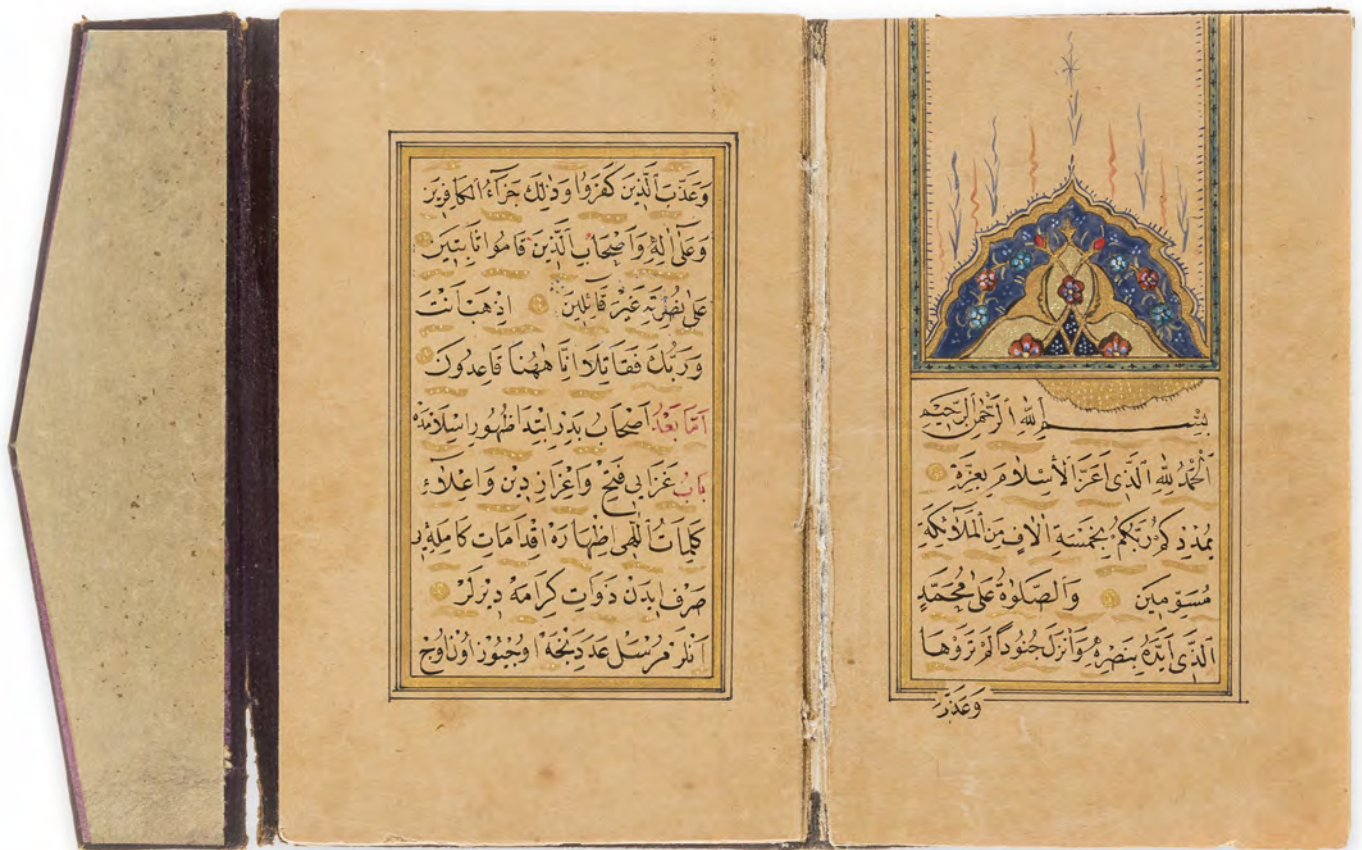 بِسْمِ اللّٰهِ الرَّحْمٰنِ الرَّحِيمِ
اَلْحَمْدُ لِلّٰهِ الَّذِى اَعَزَّ الْاَسْلَامَ بِعِزَّةِ
يُمْدِدْكُمْ رَبُّكُمْ بِخَمْسَةِ اٰلَافٍ مِنَ الْمَلٰٓائِكَةِ
مُسَوِّمِينَ وَالصَّلٰوةُ عَلٰى مُحَمَّدٍ
الَّذِى اَيَّدَهُ بِنَصْرِهِ وَاَنْزَلَ جُنُودًا لَمْ تَرَوْهَا
وَعَذَّبَ
وَعَذَّبَ الَّذِينَ كَفَرُوا وَذٰلِكَ جَزَاءُ الْكَافِرِينَ
وَعَلٰى اٰلِهِ وَاَصْحَابِ الَّذِينَ قَامُوا ثَابِتِينَ
عَلٰى نُصْرَتِهِ غَيْرَ قَائِلِينَ اِذْهَبْ اَنْتَ
وَرَبُّكَ فَقَاتِلَا اِنَّا هٰهُنَا قَاعِدُونَ
اَمَّا بَعْدُ اَصْحَابِ بَدْرِ ابْتِدَا ظُهُورِ اِسْلَامْدَه
بَابِ غَزَايِى فَتْحْ وَاِعْزَازِ دِينْ وَاِعْلَاءِ
كَلِمَاتُ اللّٰهِى اِظْهَارَه اِقْدَامَاتِ كَامِلَهْ يِى
صَرْف اِيدَنْ ذَوَاتِ كِرَامَهْ دِيرْلَرْ
اَنْلَرْ مُرْسَلْ عَدَدِنْجَهْ اُوچْيُوزْ اُونْ اُوچْ